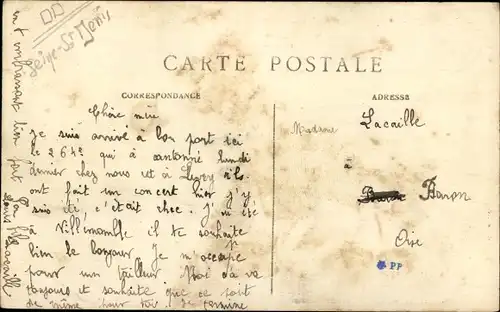 Seine-St Denis
CARTE POSTALE
CORRESPONDANCE
ADRESSE
Chère mère
Je suis arrivé à bon port ici
le 264e qui a cantonné lundi
dernier chez nous est à Livry ils
ont fait un concert hier j'y
suis été, c'était chec. J'ai été
à Villemomble il te souhaite
bien le bonjour je m'occupe
pour un tailleur Moi ça va
toujours et souhaite que ce soit
de même pour toi. Je termine
en t'embrassant bien fort
ton fils
Lacaille
Madame
Lacaille
à
Baron
Oise
PP